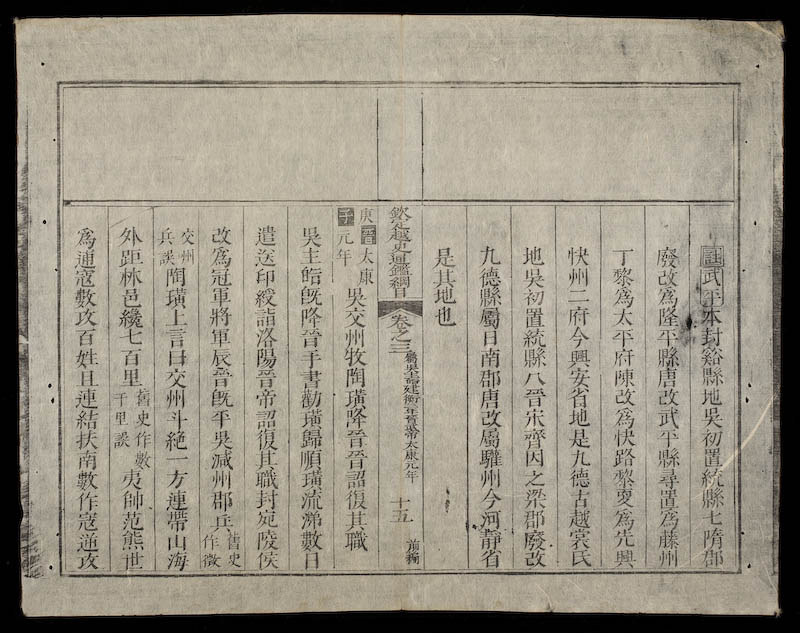 註武平本封谿縣地吳初置統縣七隋郡
廢改爲隆平縣唐改武平縣尋置爲藤州
丁黎爲太平府陳改爲快路黎更爲先興
快州二府今興安省地是九德古越裳氏
地吳初置統縣八晉宋齊因之梁郡廢改
九德縣屬日南郡唐改屬驩州今河靜省
是其地也
欽定越史通鑑綱目 卷之三 屬吳晧建衡三年晉武帝太康元年 十五 前編
庚子晉太康元年吳交州牧陶璜降晉晉詔復其職
吳主皓旣降晉手書勸璜歸順璜流涕數日
遣送印綬詣洛陽晉帝詔復其職封宛陵侯
改爲冠軍將軍辰晉旣平吳減州郡兵舊史作徵
交州兵誤陶璜上言曰交州斗絕一方連帶山海
外距林邑纔七百里舊史作數千里誤夷帥范熊世
爲逋寇數攻百姓且連結扶南數作寇逋攻